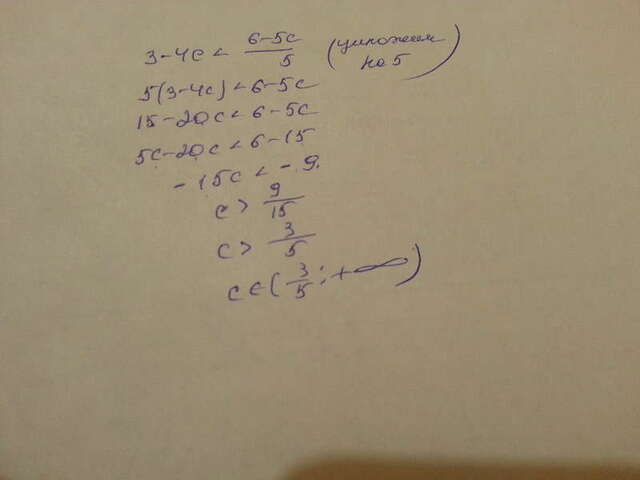 3-4c < 6-5c/5 (умножим на 5)
5(3-4c) < 6-5c
15-20c < 6-5c
5c-20c < 6-15
-15c < -9
c > 9/15
c > 3/5
c ∈ (3/5; +∞)